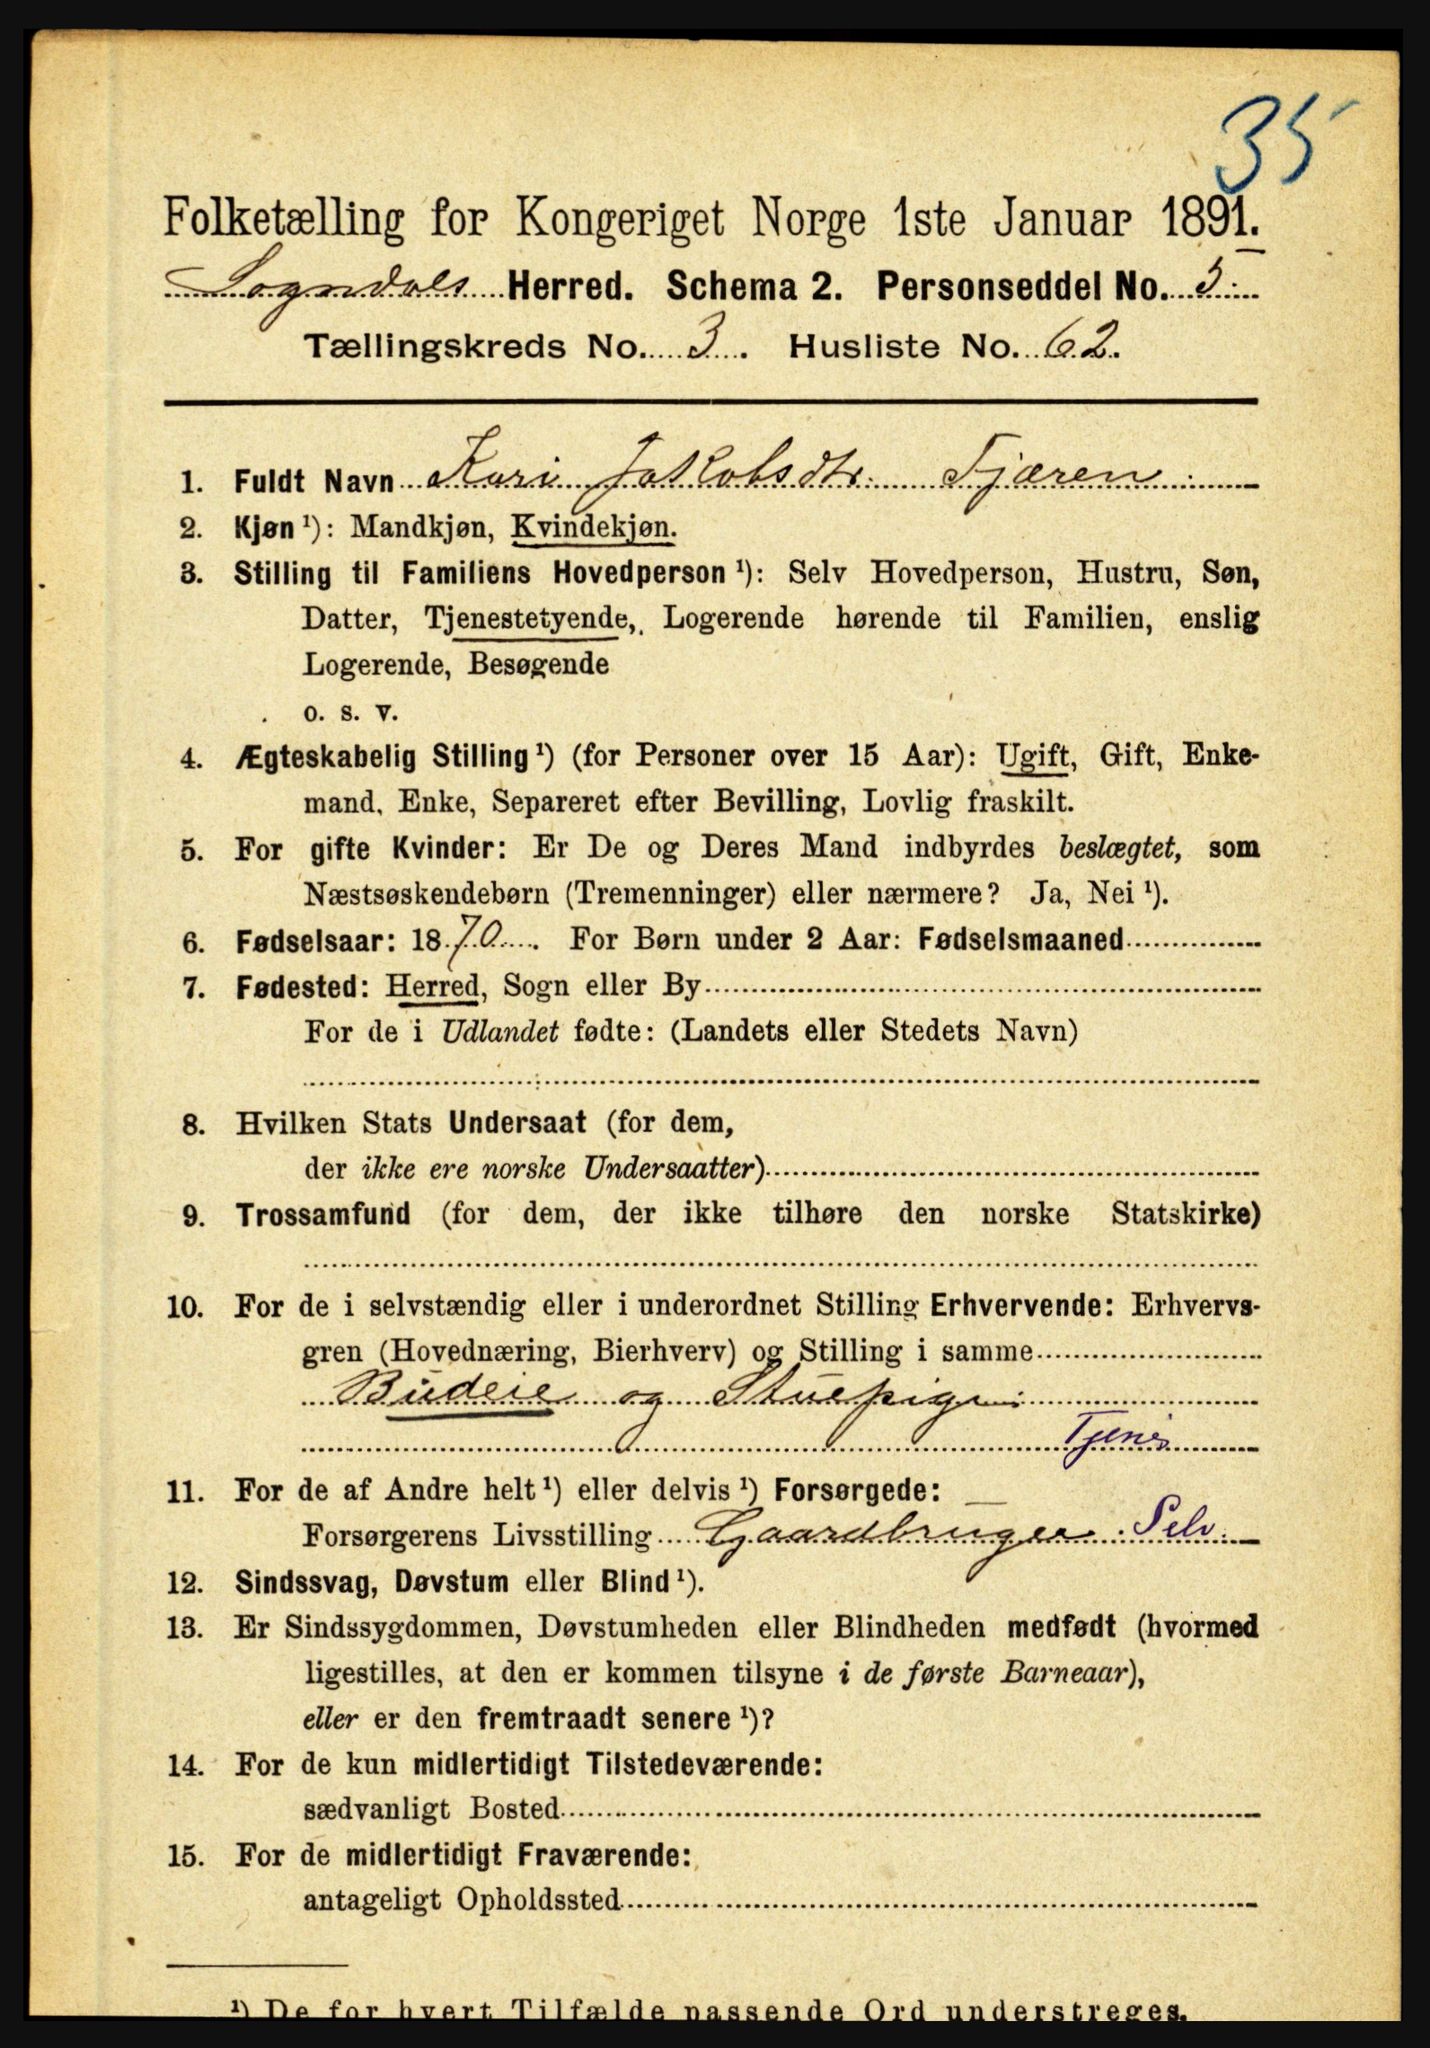 35
Folketælling for Kongeriget Norge 1ste Januar 1891.
Sogndals Herred. Schema 2. Personseddel No. 5
Tællingskreds No. 3. Husliste No. 62.
1. Fuldt Navn Kari Jakobsdtr. Fjæren
2. Kjøn ¹): Mandkjøn, Kvindekjøn.
3. Stilling til Familiens Hovedperson ¹): Selv Hovedperson, Hustru, Søn,
Datter, Tjenestetyende, Logerende hørende til Familien, enslig
Logerende, Besøgende
o. s. v.
4. Ægteskabelig Stilling ¹) (for Personer over 15 Aar): Ugift, Gift, Enke-
mand, Enke, Separeret efter Bevilling, Lovlig fraskilt.
5. For gifte Kvinder: Er De og Deres Mand indbyrdes beslægtet, som
Næstsøskendebørn (Tremenninger) eller nærmere? Ja, Nei ¹).
6. Fødselsaar: 1870. For Børn under 2 Aar: Fødselsmaaned
7. Fødested: Herred, Sogn eller By
For de i Udlandet fødte: (Landets eller Stedets Navn)
8. Hvilken Stats Undersaat (for dem,
der ikke ere norske Undersaatter)
9. Trossamfund (for dem, der ikke tilhøre den norske Statskirke)
10. For de i selvstændig eller i underordnet Stilling Erhvervende: Erhvervs-
gren (Hovednæring, Bierhverv) og Stilling i samme
Budeie og Stuepige
Tjenes
11. For de af Andre helt ¹) eller delvis ¹) Forsørgede:
Forsørgerens Livsstilling Gaardbruger. Selv.
12. Sindssvag, Døvstum eller Blind ¹).
13. Er Sindssygdommen, Døvstumheden eller Blindheden medfødt (hvormed
ligestilles, at den er kommen tilsyne i de første Barneaar),
eller er den fremtraadt senere ¹)?
14. For de kun midlertidigt Tilstedeværende:
sædvanligt Bosted
15. For de midlertidigt Fraværende:
antageligt Opholdssted
¹) De for hvert Tilfælde passende Ord understreges.